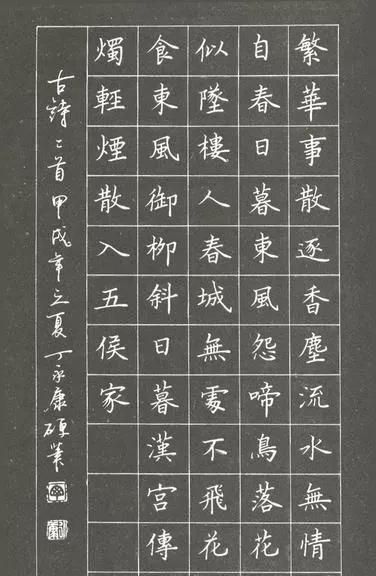 繁華事散逐香塵流水無情
自春日暮東風怨啼鳥落花
似墜樓人春城無處不飛花
食東風御柳斜日暮漢宮傳
燭輕煙散入五侯家
古詩二首甲戌年立夏丁永康硬筆